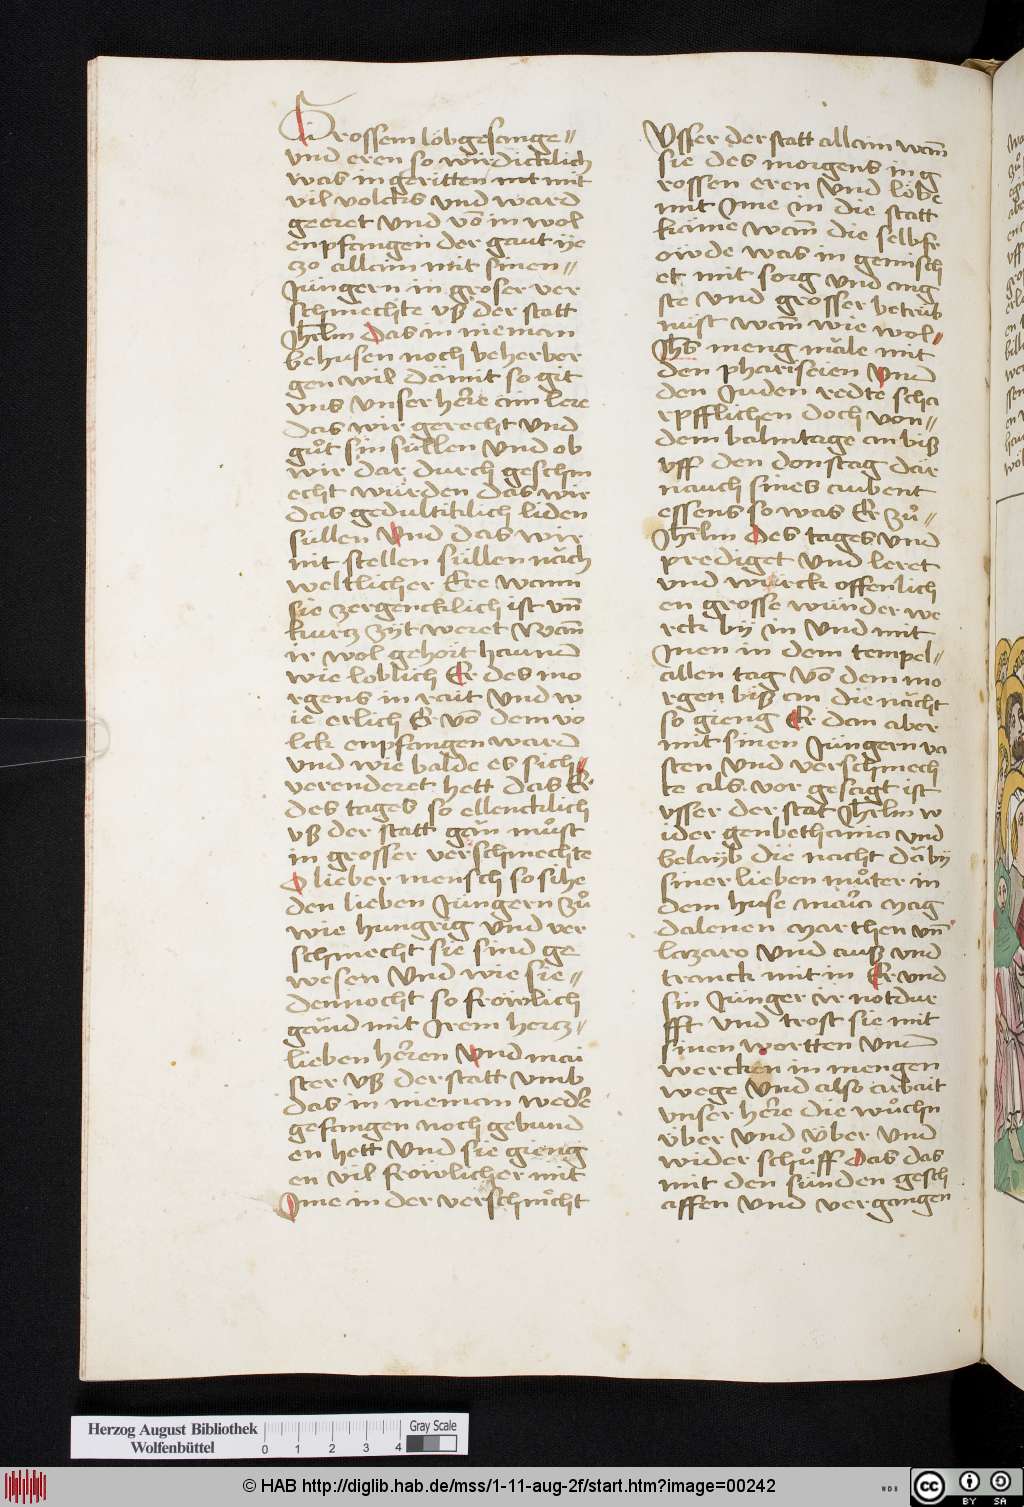 Grossem lobgesange〃
vnd eren so wirdicklich
was in geritten mit mit
vil volcks vnd ward
geeret vnd vō in wol
enpfangen der gaut ye
zo allain mit sinen〃
Jüngern in groser ver
schmechte vß der statt
Jhrlm Das in nieman
behusen noch beherber
gen wil dămit so git
vns vnser here ain lere
das wir gerecht vnd
gůt sin süllen vnd ob
wir dar durch geschm
echt würden das wir
das gedultiklich liden
süllen Vnd das wir
nit stellen süllen năch
weltlicher Ere wann
sie zergencklich ist vn̄
kurcz zyt weret Wan̄
ir wol gehört haund
wie loblich Er des mo
rgens in rait vnd w
ie erlich Er vō dem vo
lck enpfangen ward
vnd wie balde es sich〃
verenderet hett das Er
des tages so ellencklich
vß der statt găn můst
in grosser verschmechte
O lieber mensch so sihe
den lieben Jüngern zů
wie hungrig vnd ver
schmecht sie sind ge
wesen Vnd wie sie〃
dennocht so frőwlich
gănd mit Jrem hercz〃
lieben heren Vnd mai
ster vß der statt vmb
das in nieman weder
gefangen noch gebund
en hett Vnd sie gieng
en vil frőwlicher mit
Jme in der verschmőcht
Vsser der statt allain wan̄
sie des morgens in g
rossen eren vnd lőbe
mit Jme in die statt
kăme wan̄ die selb fr
őwde was in gemisch
et mit sorg vnd ang
ste vnd grosser betrüb
nüst wan̄ wie wol〃
Jhs meng măle mit
den phariseien Vnd
den Juden redte scha
rpfflichen doch von〃
dem balmtage an biß
vff den donstag dăr
nauch sines aubent
essens so was Er zů〃
Jhrlm Des tages vnd
prediget vnd leret
vnd würck offenlich
en grosse wunder we
rck by in Vnd mit
Jnen in dem tempel〃
allen tag vō dem mo
rgen biß an die năcht
so gieng Er dan aber
mit sinen Jüngern va
sten vnd verschmech
te als vor gesagt ist
vsser der stat Jhrlm w
ider gen bethania vnd
belayb die nacht dă by
siner lieben můter in
dem huse maria Mag
dalenen Marthen vn̄
lazaro vnd auß vnd
tranck mit in Er vnd
sin Jünger ir notdur
fft vnd trost sie mit
sinen wortten vnd
wercken in mengen
wege Vnd also arbait
vnser here die wůchn
über vnd über vnd
wider schůff Das das
mit den sünden gesch
affen vnd vergangen
Herzog August Bibliothek
Wolfenbüttel
0 1 2 3 4
Gray Scale
© HAB http://diglib.hab.de/mss/1-11-aug-2f/start.htm?image=00242
WDB
cc BY SA